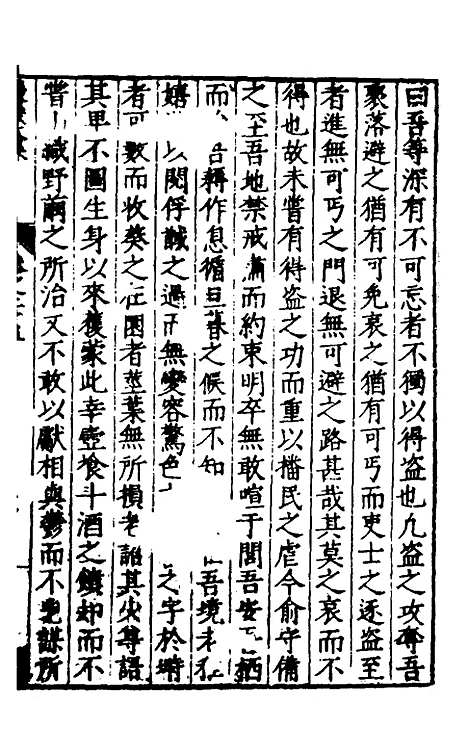 曰吾等深有不可忘者不獨以得盗也凢盗之攻奪吾
聚落避之猶有可免哀之猶有可丐而吏士之逐盗至
者進無可丐之門退無可避之路甚哉其莫之哀而不
得也故未嘗有得盗之功而重以播民之虐今俞守備
之至吾地禁戒肅而約束明卒無敢喧于閭吾安栖
而耕作息循旦暮之候而不知吾境未
嬉以閱俘馘之過而無變容驚色之字於時
者可數而牧葵之在園者莖葉無所損老詘其火等語
其甲不圖生身以來獲蒙此幸壺飡斗酒之饋却而不
嘗山蔌野蔌之所治又不敢以獻相與鬱而不寛謀所